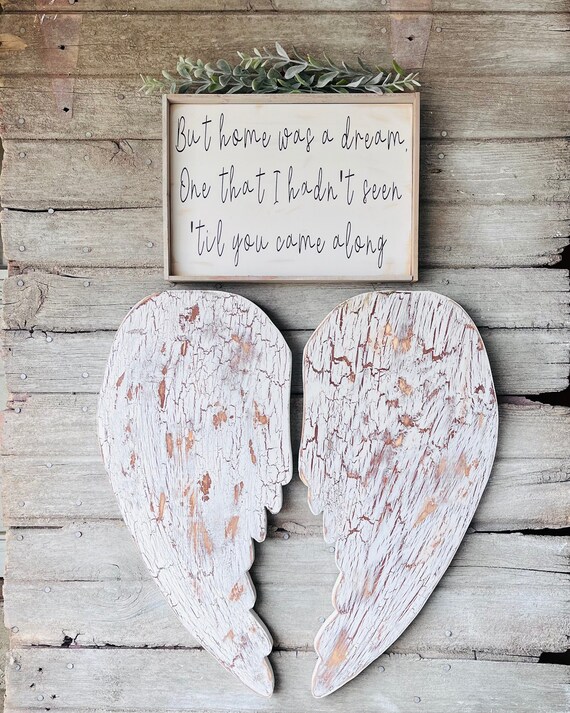 But home was a dream,
One that I hadn't seen
'til you came along